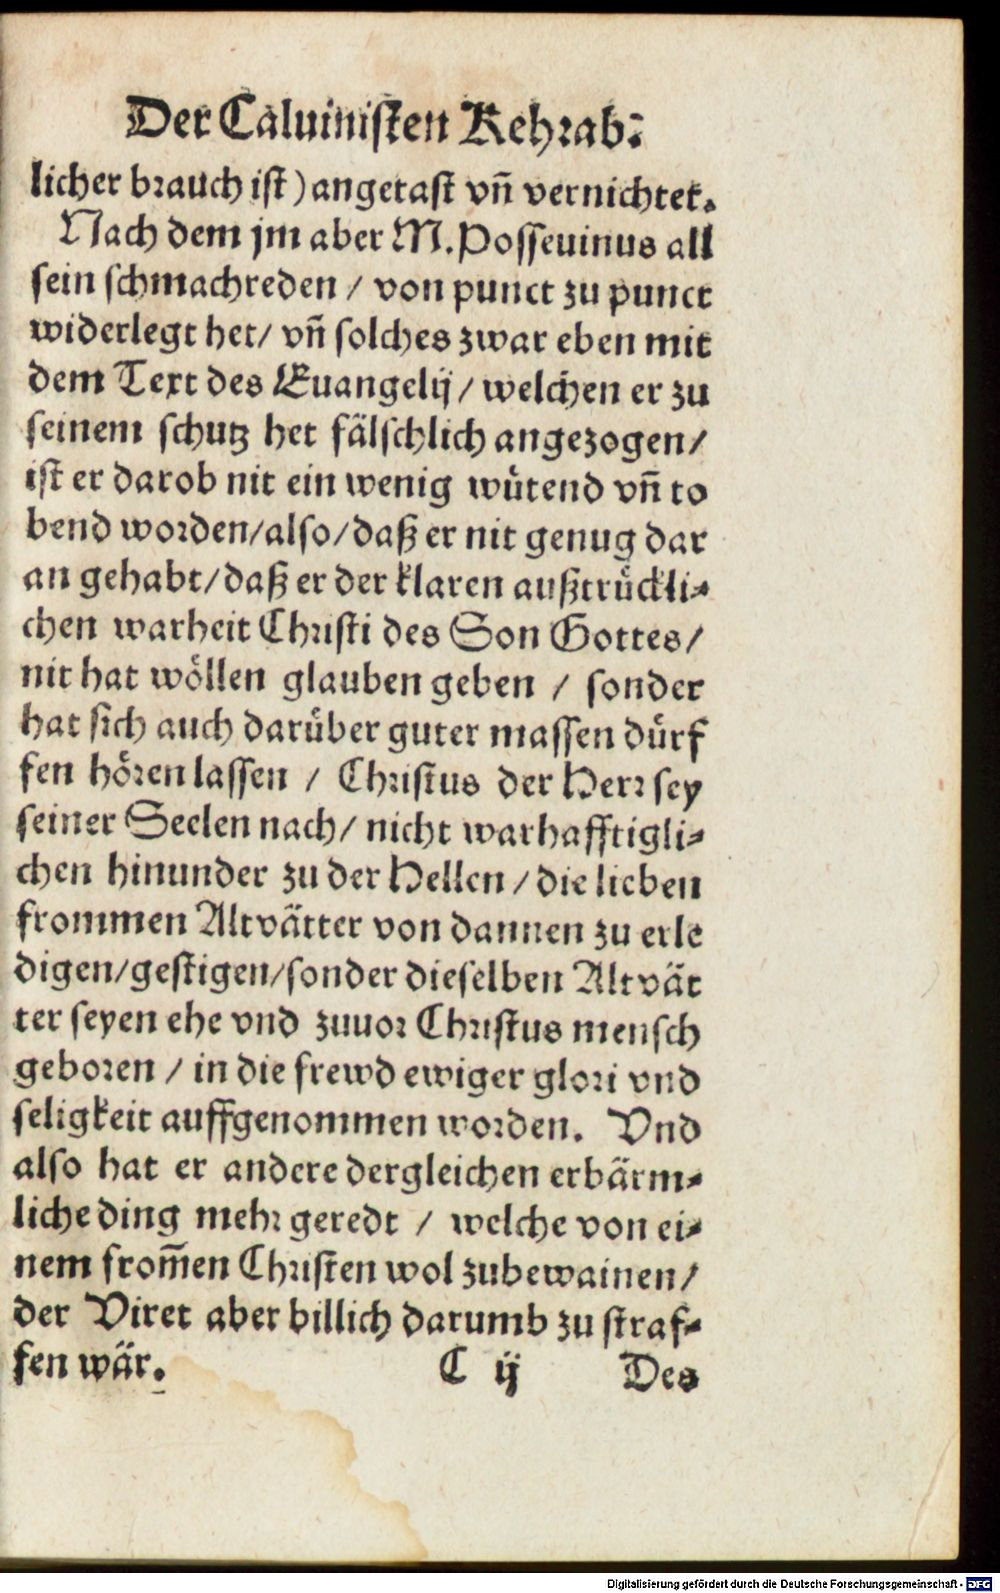 Der Caluinisten Kehrab:
licher brauch ist) angetast vn̄ vernichtet.
Nach dem jm aber M. Posseuinus all
sein schmachreden / von punct zu punct
widerlegt het / vn̄ solches zwar eben mit
dem Text des Euangelij / welchen er zu
seinem schutz het fälschlich angezogen /
ist er darob nit ein wenig wütend vn̄ to
bend worden / also / daß er nit genug dar
an gehabt / daß er der klaren außtrückli⸗
chen warheit Christi des Son Gottes /
nit hat wöllen glauben geben / sonder
hat sich auch darüber guter massen dürf
fen hören lassen / Christus der Herr sey
seiner Seelen nach / nicht warhafftigli⸗
chen hinunder zu der Hellen / die lieben
frommen Altvätter von dannen zu erle
digen / gestigen / sonder dieselben Altvät
ter seyen ehe vnd zuuor Christus mensch
geboren / in die frewd ewiger glori vnd
seligkeit auffgenommen worden. Vnd
also hat er andere dergleichen erbärm⸗
liche ding mehr geredt / welche von ei⸗
nem from̄en Christen wol zubewainen /
der Viret aber billich darumb zu straf⸗
fen wär.
C ij
Des
Digitalisierung gefördert durch die Deutsche Forschungsgemeinschaft - DFG